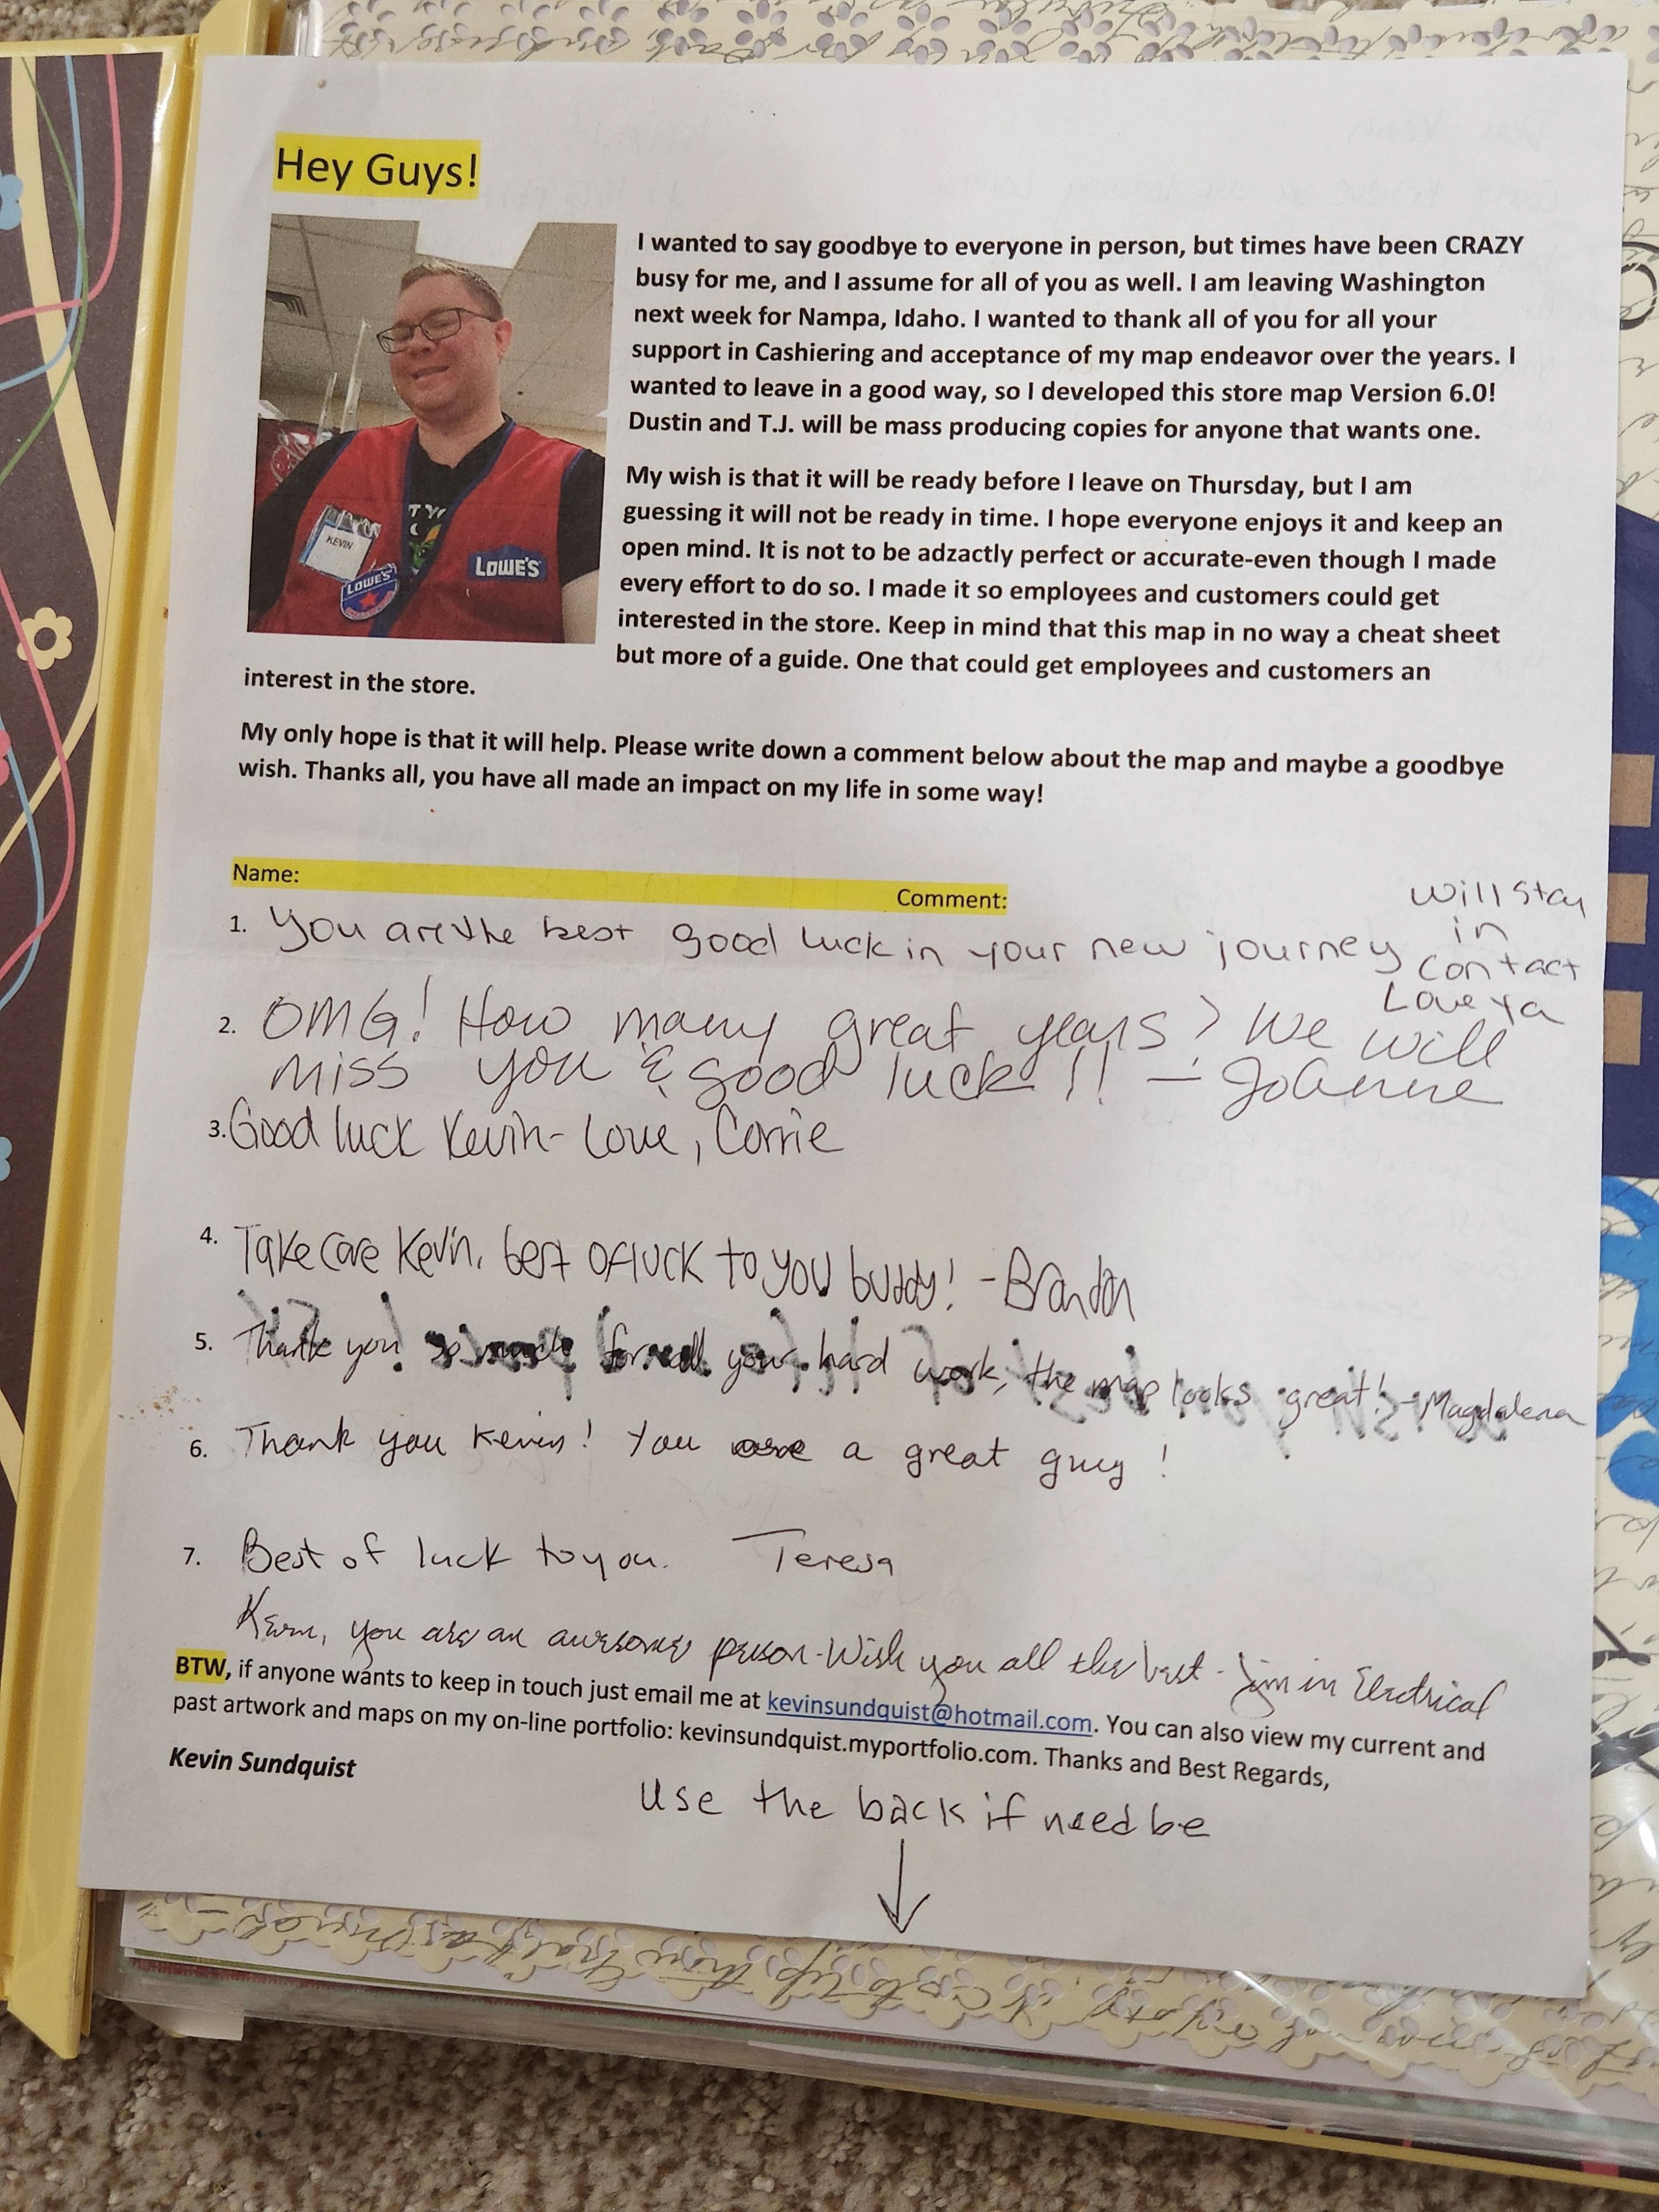 Hey Guys!
I wanted to say goodbye to everyone in person, but times have been CRAZY
busy for me, and I assume for all of you as well. I am leaving Washington
next week for Nampa, Idaho. I wanted to thank all of you for all your
support in Cashiering and acceptance of my map endeavor over the years. I
wanted to leave in a good way, so I developed this store map Version 6.0!
Dustin and T.J. will be mass producing copies for anyone that wants one.
My wish is that it will be ready before I leave on Thursday, but I am
guessing it will not be ready in time. I hope everyone enjoys it and keep an
open mind. It is not to be adzactly perfect or accurate-even though I made
every effort to do so. I made it so employees and customers could get
interested in the store. Keep in mind that this map in no way a cheat sheet
but more of a guide. One that could get employees and customers an
interest in the store.
KEVIN
LOWE'S
LOWE'S
My only hope is that it will help. Please write down a comment below about the map and maybe a goodbye
wish. Thanks all, you have all made an impact on my life in some way!
Name:
Comment:
1. You are the best good luck in your new journey
will stay
in
contact
Love Ya
2. OMG! How many great years? We will
miss you & good luck!! - JoAnne
3. Good luck Kevin- Love, Corrie
4. Take care Kevin, best of luck to you buddy! - Brandon
5. Thank you so much for all your hard work, the map looks great! - Magdalena
6. Thank you Kevin! You are a great guy!
7. Best of luck to you. Teresa
Kevin, you are an awesome person - Wish you all the best - Jim in Electrical
BTW, if anyone wants to keep in touch just email me at kevinsundquist@hotmail.com. You can also view my current and
past artwork and maps on my on-line portfolio: kevinsundquist.myportfolio.com. Thanks and Best Regards,
Kevin Sundquist
Use the back if need be